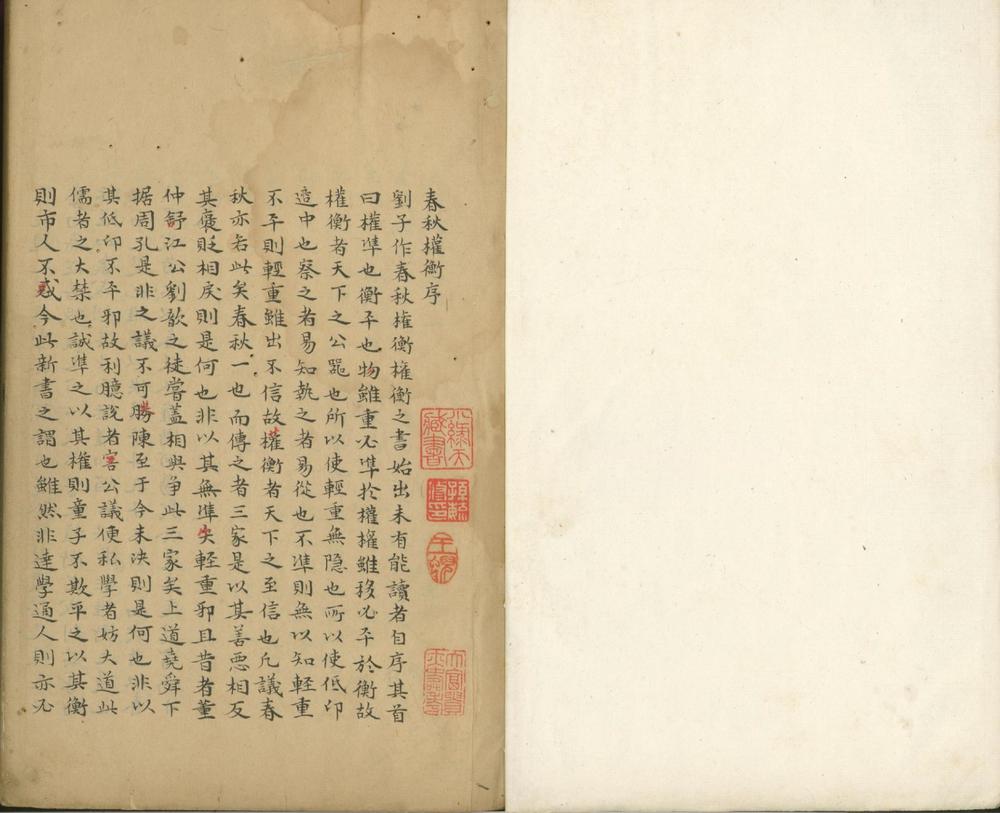 春秋權衡序
劉子作春秋權衡權衡之書始出未有能讀者自序其首
曰權準也衡平也物雖重必準於權權雖移必平於衡故
權衡者天下之公噐也所以使輕重無隐也所以使低卬
適中也察之者易知執之者易從也不準則無以知輕重
不平則輕重雖出不信故權衡者天下之至信也凡議春
秋亦若此矣春秋一也而傳之者三家是以其善惡相反
其褒貶相戾則是何也非以其無準失輕重邪且昔者董
仲舒江公劉歆之徒嘗葢相與争此三家矣上道堯舜下
据周孔是非之議不可勝陳至于今未決則是何也非以
其低卬不平邪故利臆說者害公議便私學者妨大道此
儒者之大禁也誠準之以其權則童子不欺平之以其衡
則市人不惑今此新書之謂也雖然非達學通人則亦必